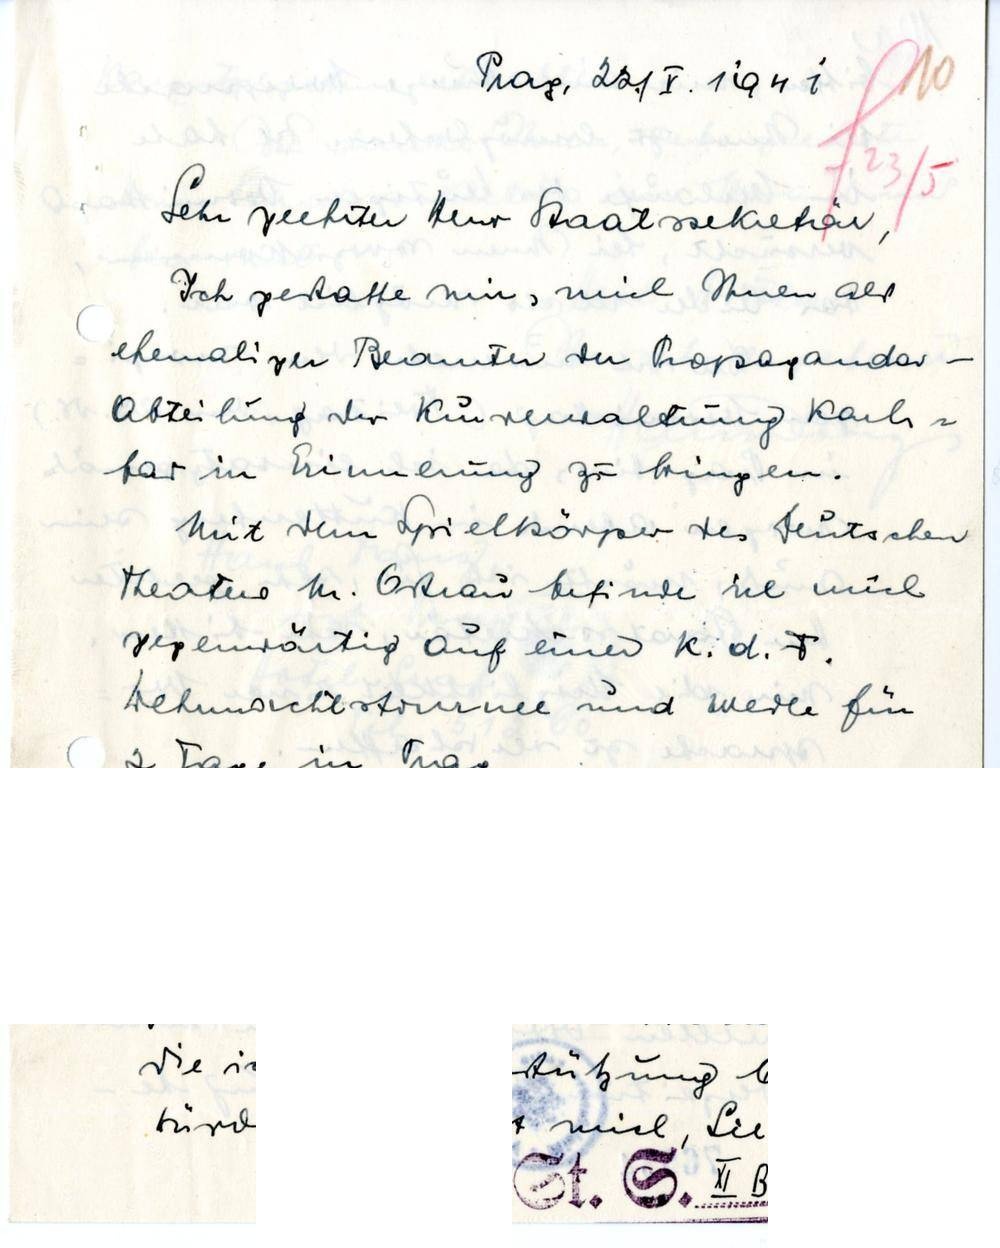 Prag, 22/V. 1941
10
23/5
Sehr geehrter Herr Staatssekretär,
Ich gestatte mir, mich Ihnen als
ehemaliger Beamter der Propaganda-
Abteilung der Kurverwaltung Karls=
bad in Erinnerung zu bringen.
Mit dem Spielkörper des Deutschen
Theaters M. Ostrau befinde ich mich
gegenwärtig auf einer K. d. F.
Wehrmachtstournee und weile für
2 Tage in Prag
die
stützung
mich, Sie
St. S. XI B